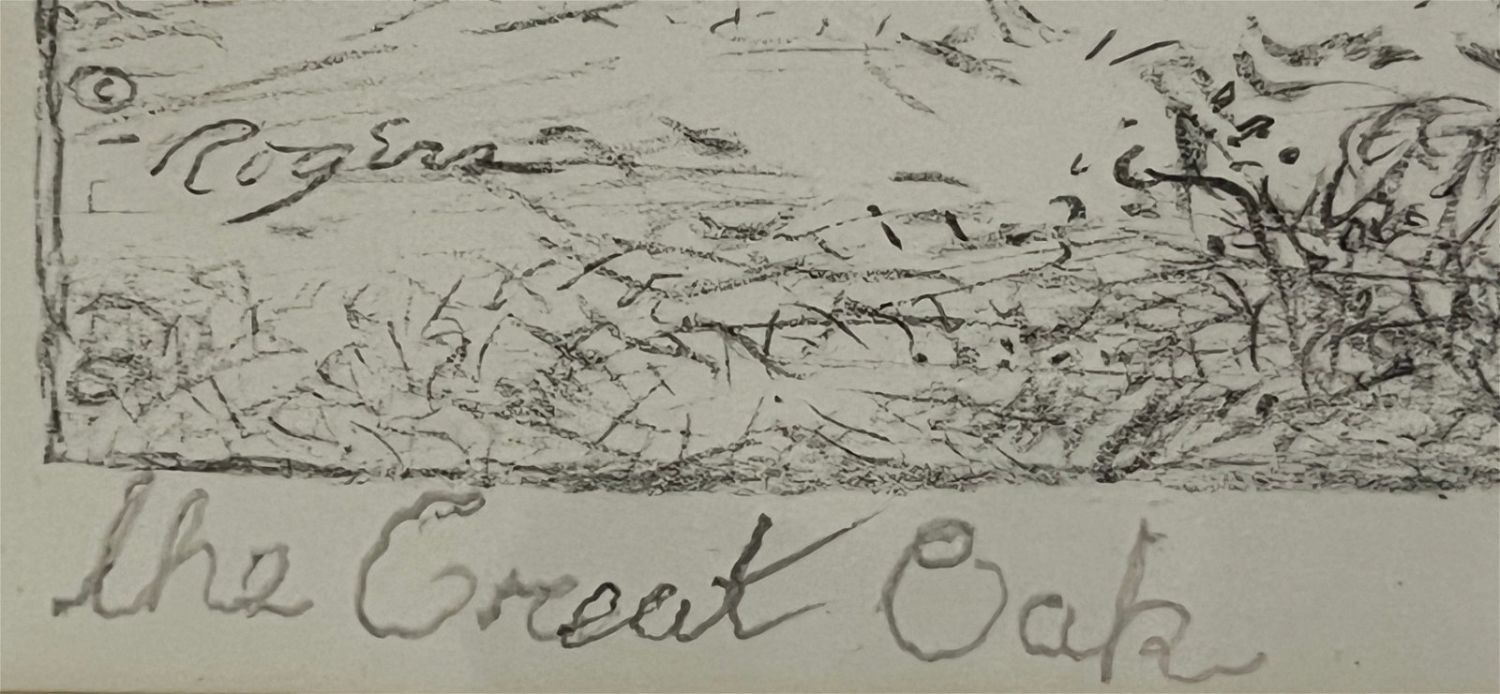 ©
Rogers
The Great Oak